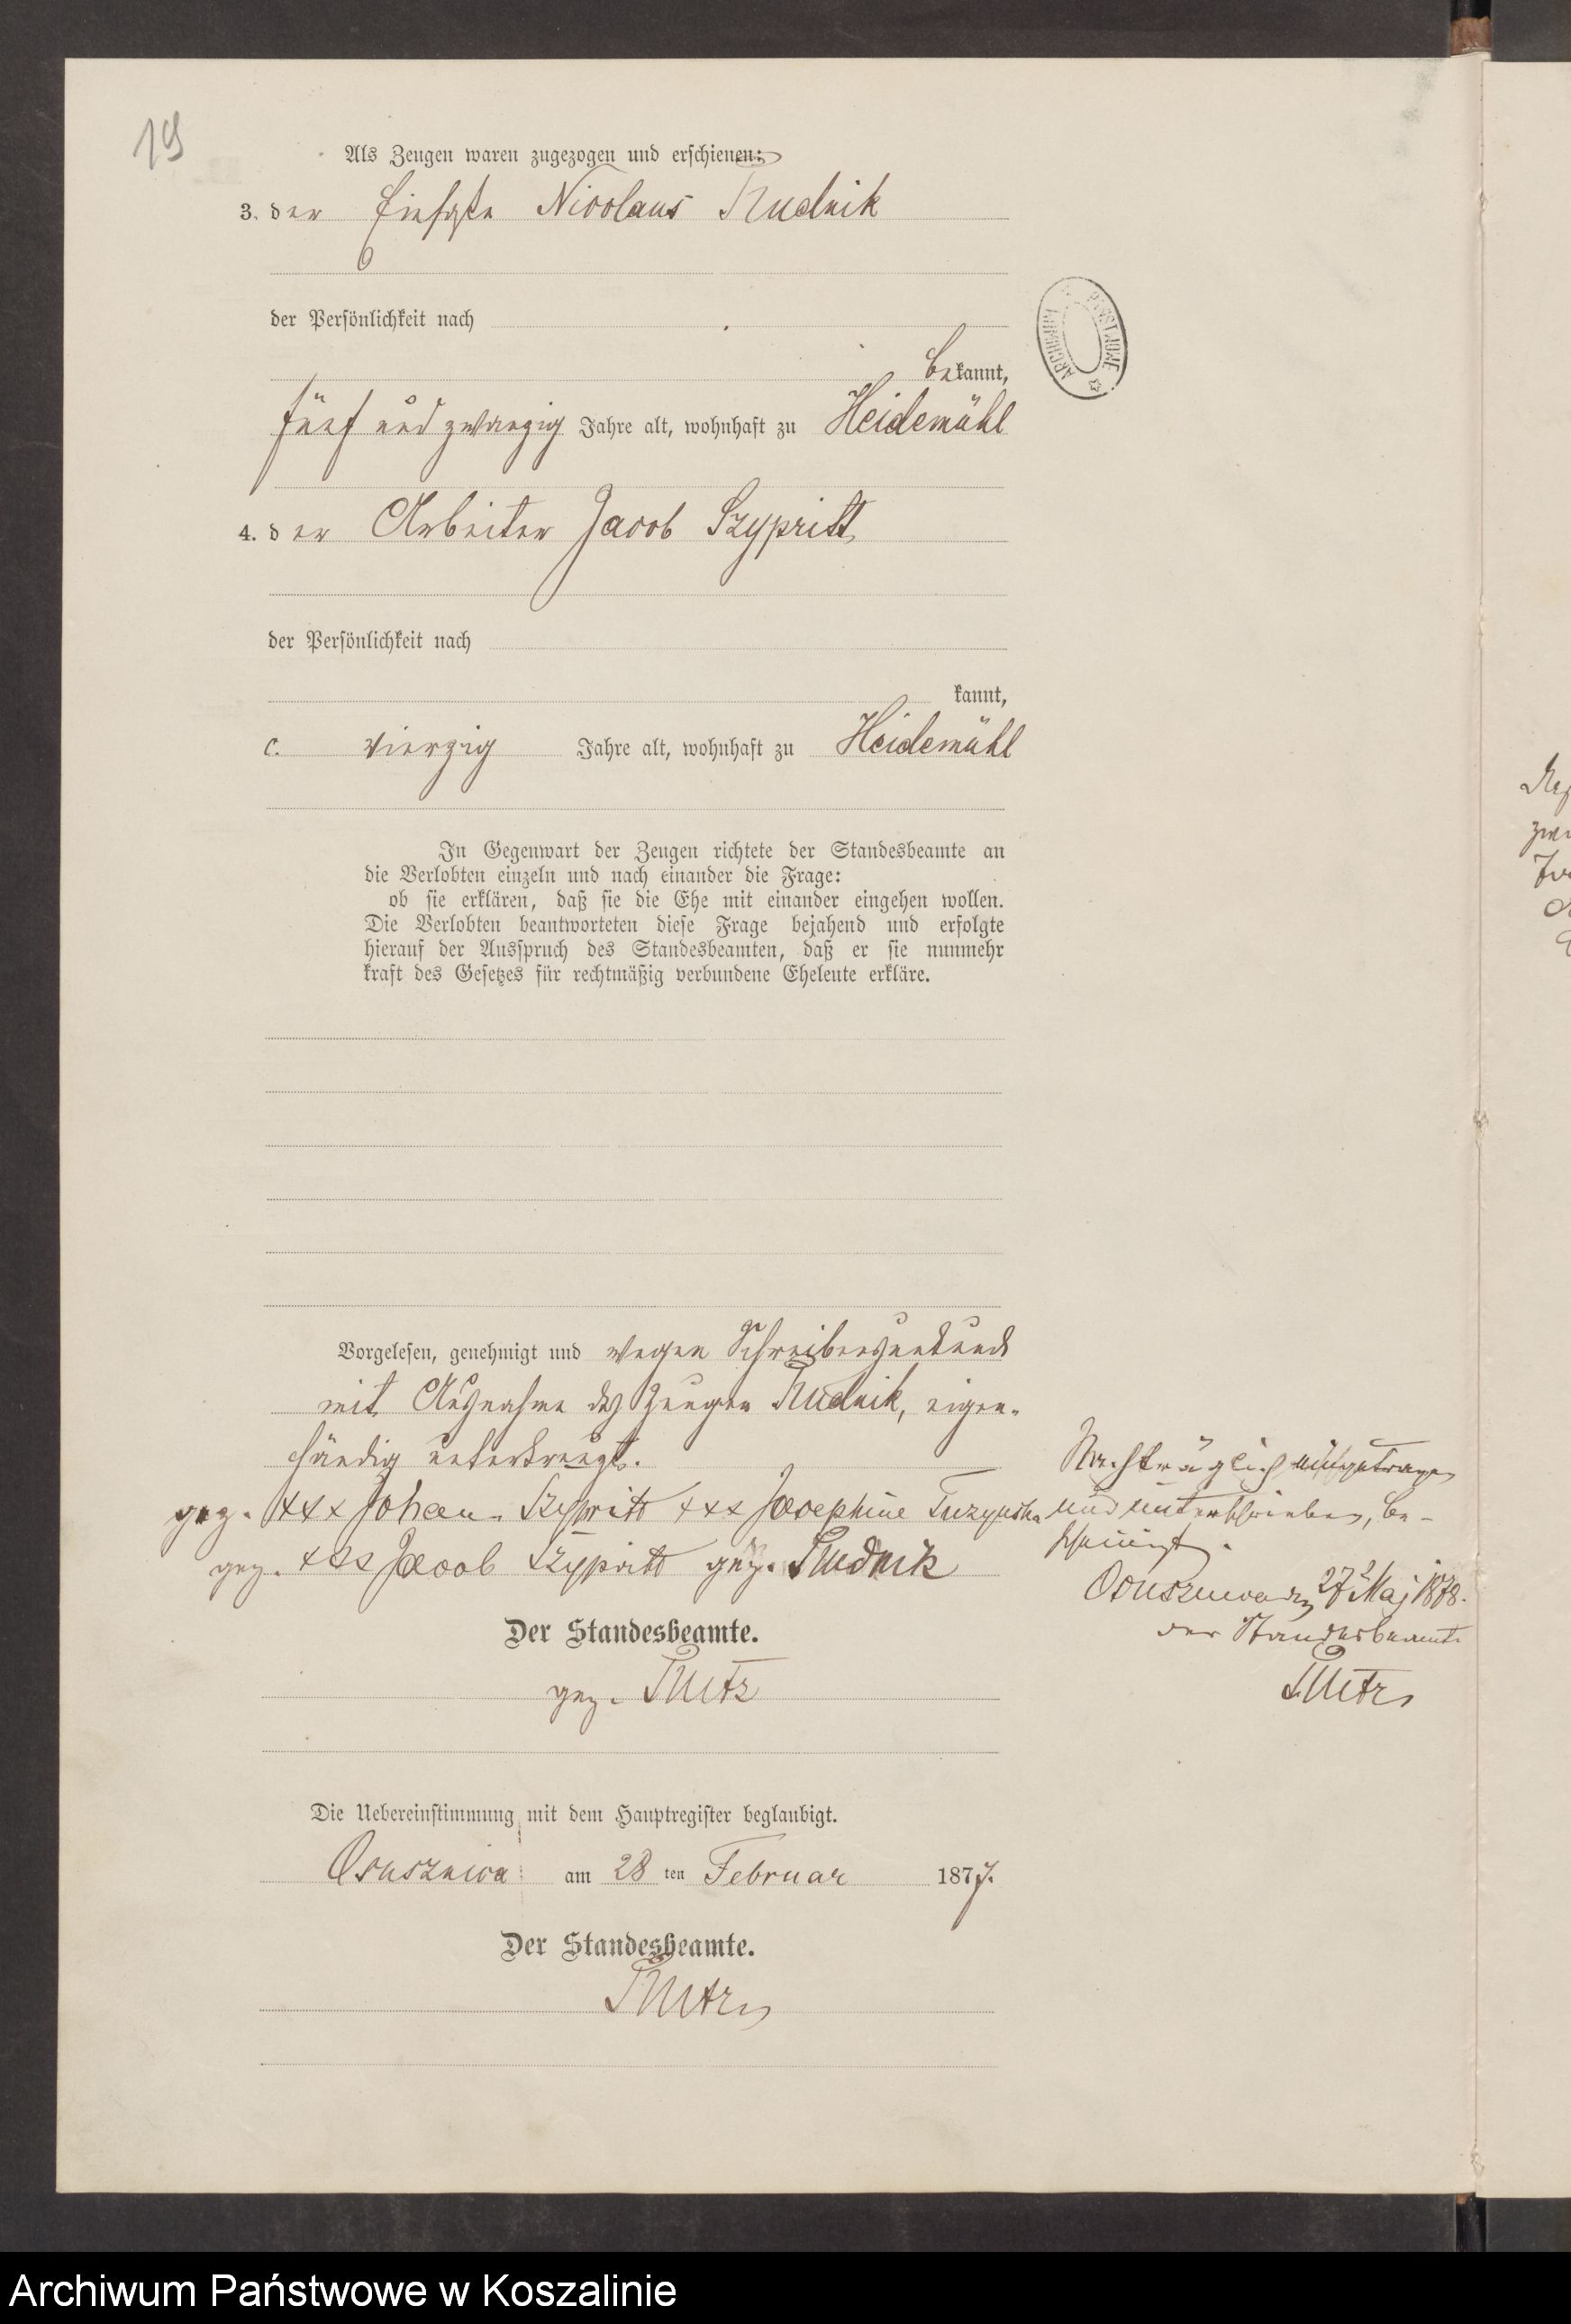 19
Als Zeugen waren zugezogen und erschienen:
3. der Nicolaus Rudnik
der Persönlichkeit nach
bekannt,
fünf und zwanzig Jahre alt, wohnhaft zu Heidemühl
4. der Arbeiter Jacob Szypritt
der Persönlichkeit nach
kannt,
c. vierzig Jahre alt, wohnhaft zu Heidemühl
In Gegenwart der Zeugen richtete der Standesbeamte an
die Verlobten einzeln und nach einander die Frage:
ob sie erklären, daß sie die Ehe mit einander eingehen wollen.
Die Verlobten beantworteten diese Frage bejahend und erfolgte
hierauf der Ausspruch des Standesbeamten, daß er sie nunmehr
kraft des Gesetzes für rechtmäßig verbundene Eheleute erkläre.
Vorgelesen, genehmigt und wegen Schreibensunkunde
mit Ausnahme des Zeugen Rudnik, eigen-
händig unterkreuzt.
gez. +++ Johann Szypritt +++ Josephine
gez. +++ Jacob Szypritt gez. Rudnik
Der Standesbeamte.
gez.
Nachträglich eingetragen
und unterschrieben, be-
scheinigt.
27 Maj 1878.
der Standesbeamte
Die Uebereinstimmung mit dem Hauptregister beglaubigt.
Ossusznica am 28 ten Februar 1877.
Der Standesbeamte.
ARCHIWUM PAŃSTWOWE
Archiwum Państwowe w Koszalinie